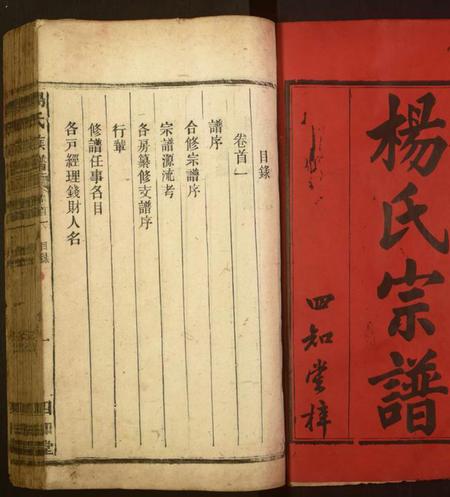 楊氏宗譜
四知堂梓
目錄
卷首一
譜序
合修宗譜序
宗譜源流考
各房纂修支譜序
行輩
修譜任事名目
各戸經理錢財人名
楊氏族譜
目錄
四知堂